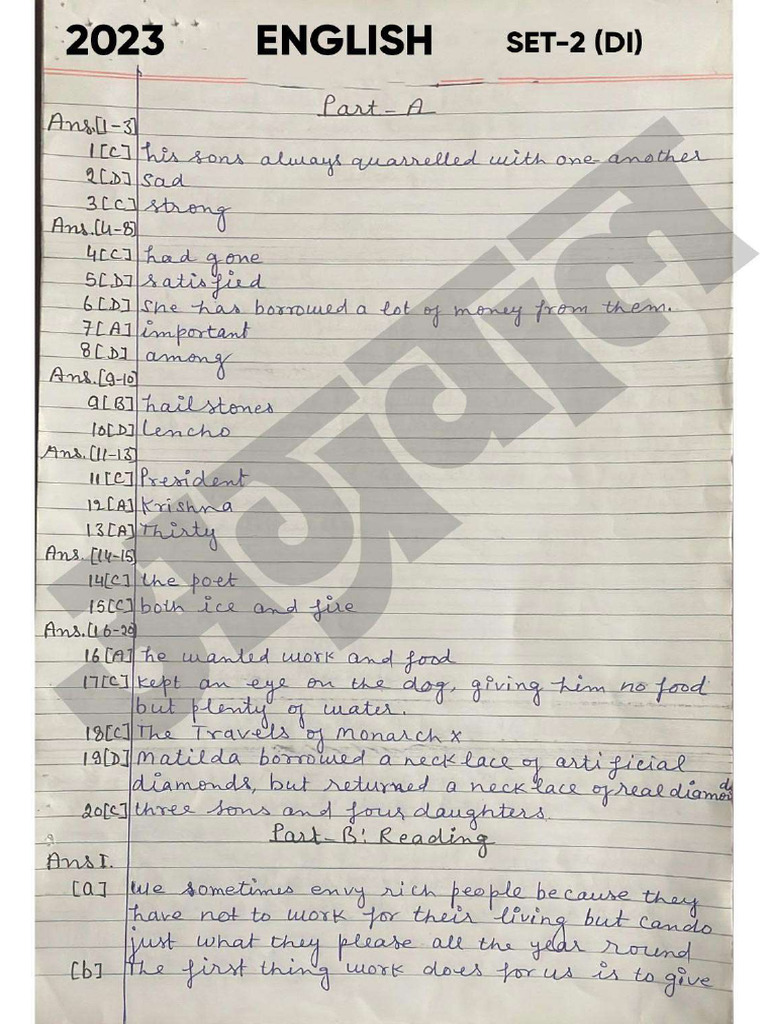 2023 ENGLISH SET-2 (DI)
Part-A
Ans.[1-3]
1[C] his sons always quarrelled with one another
2[D] Sad
3[C] strong
Ans.[4-8]
4[C] had gone
5[D] satisfied
6[D] She has borrowed a lot of money from them.
7[A] important
8[D] among
Ans.[9-10]
9[B] hailstones
10[D] Lencho
Ans.[11-13]
11[C] President
12[A] Krishna
13[A] Thirty
Ans.[14-15]
14[C] the poet
15[C] both ice and fire
Ans.[16-20]
16[A] he wanted work and food
17[C] kept an eye on the dog, giving him no food
but plenty of water.
18[C] The Travels of Monarch x
19[D] Matilda borrowed a necklace of artificial
diamonds, but returned a necklace of real diamonds
20[C] three sons and four daughters.
Part-B: Reading
Ans I.
[a] We sometimes envy rich people because they
have not to work for their living but can do
just what they please all the year round
[b] The first thing work does for us is to give